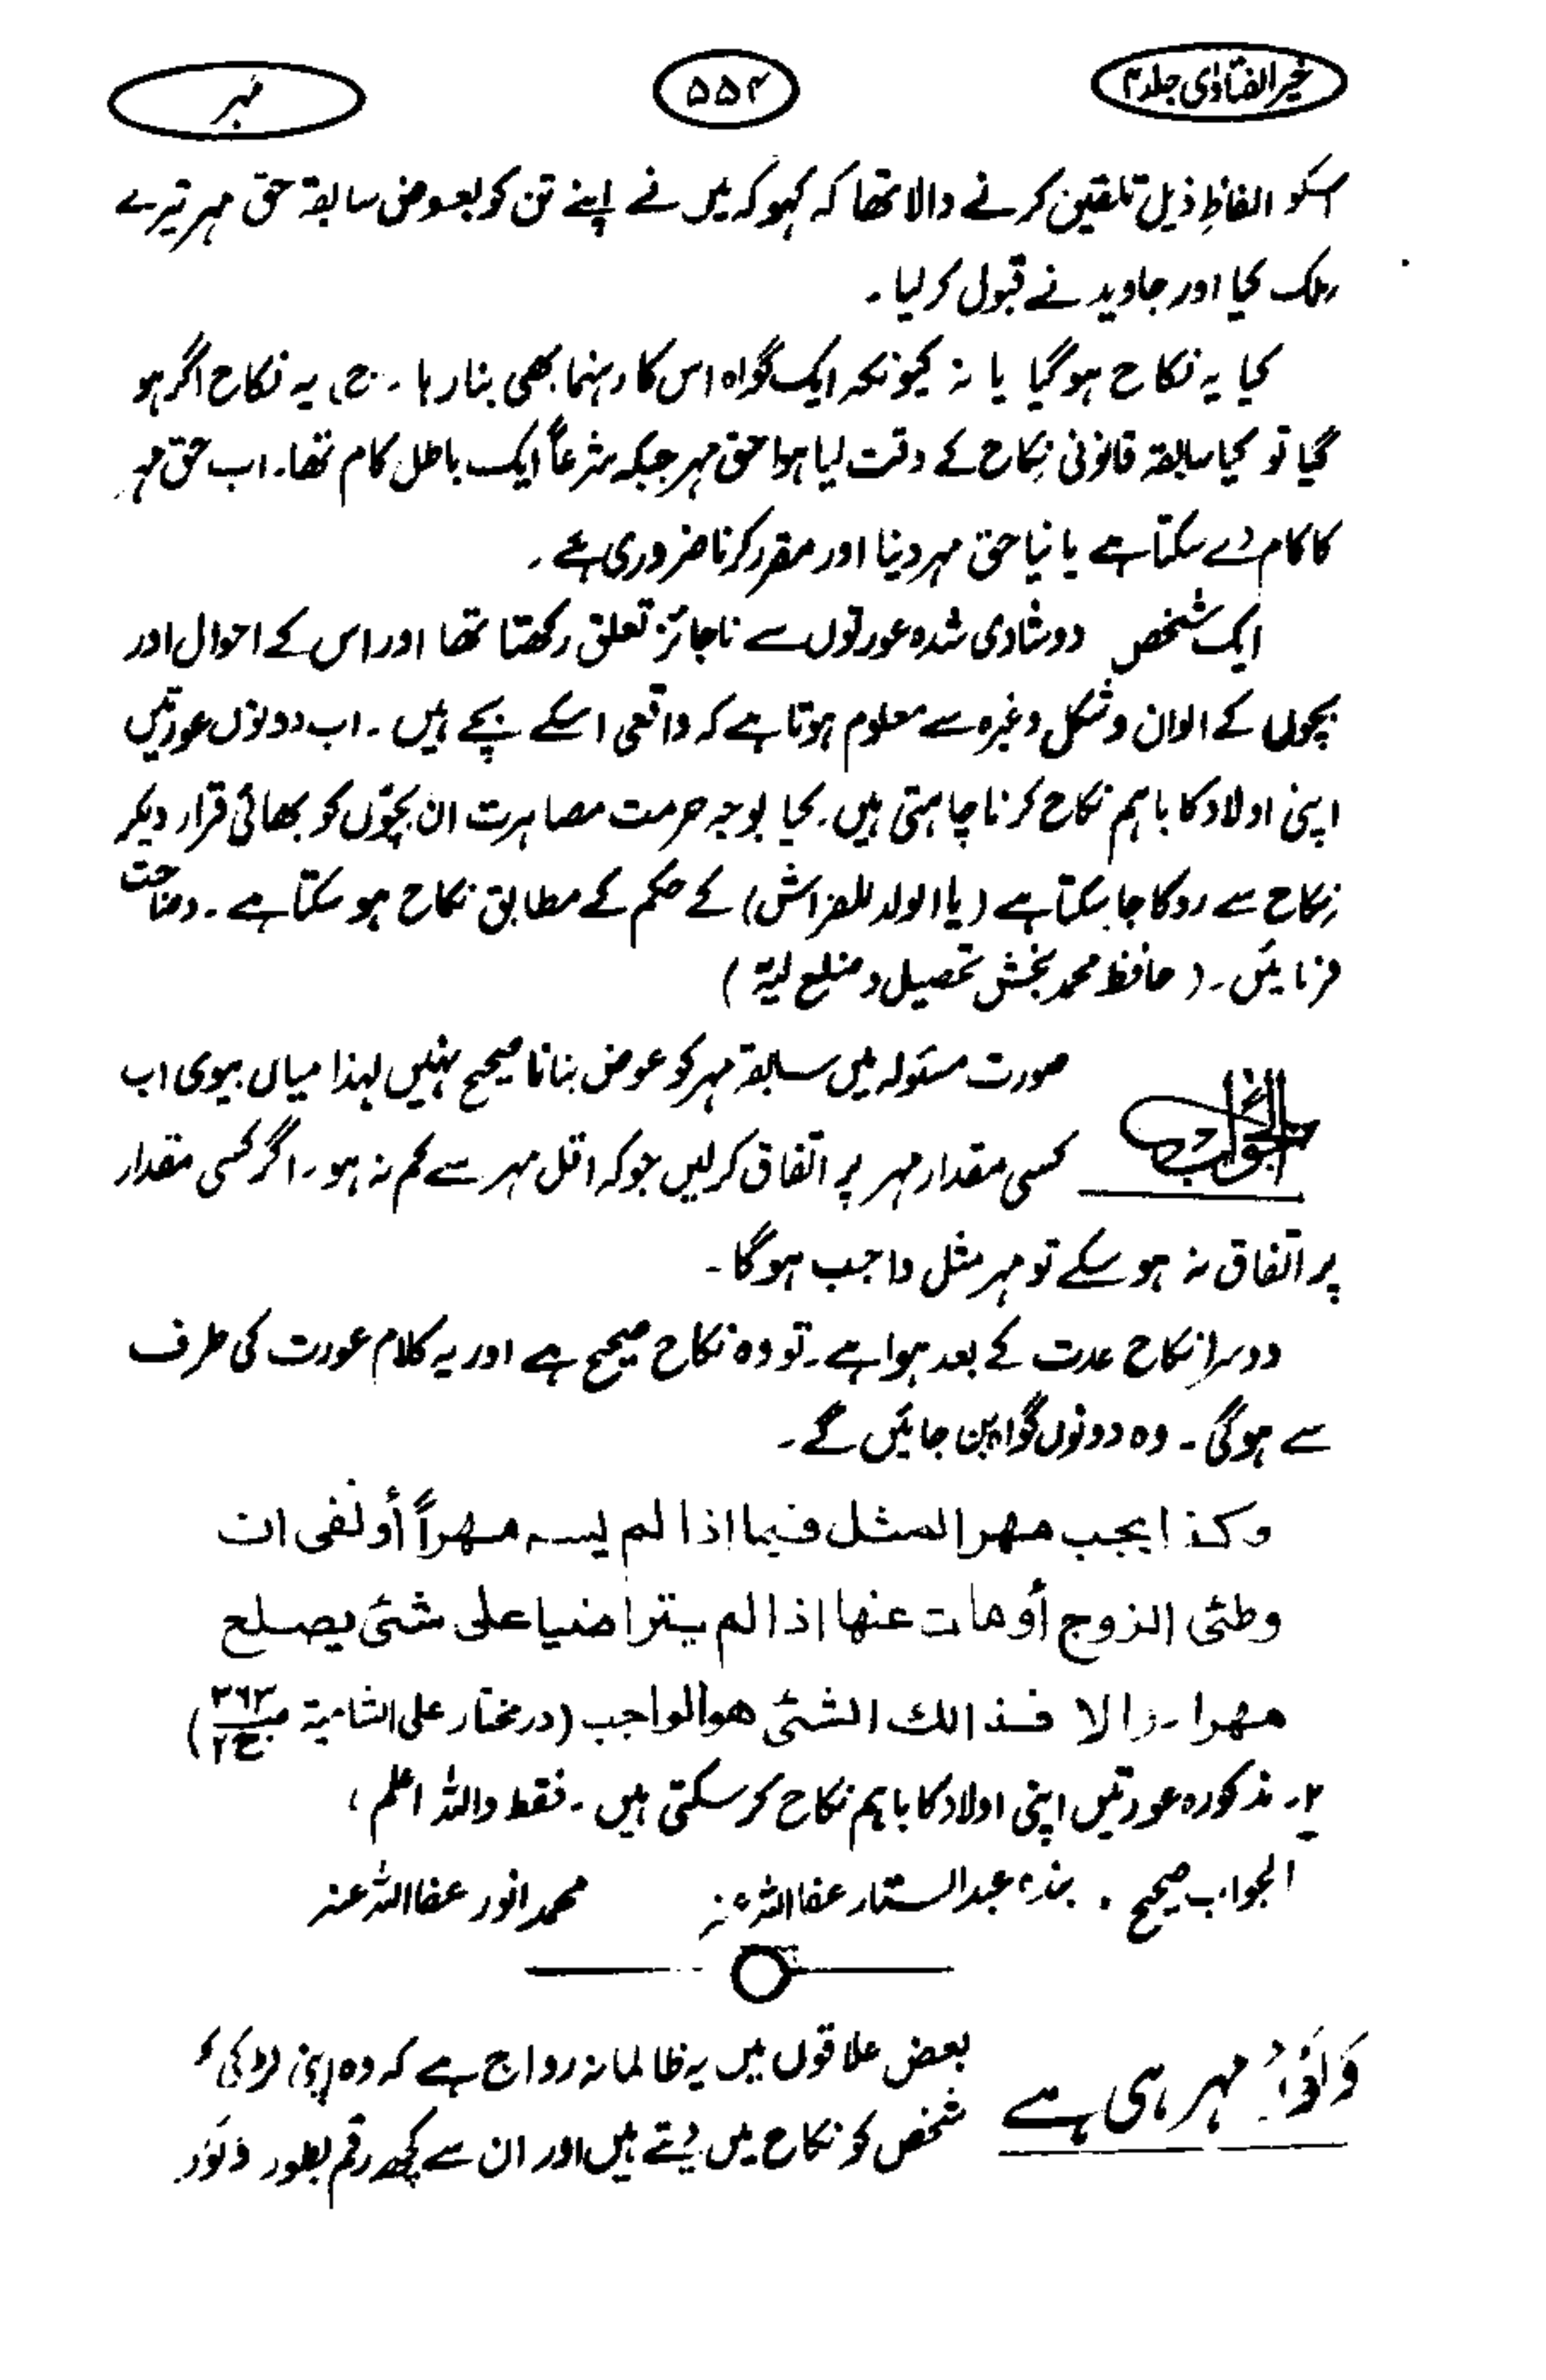 خیر الفتاوٰی جلد ۴
۵۵۴
مہر
اسکو الفاظِ ذیل تلقین کرنے والا تھا کہ کہو کہ میں نے اپنے تن کو بعوض سابقہ حق مہر تیرے
ملک کیا اور جاوید نے قبول کر لیا۔
کیا یہ نکاح ہوگیا یا نہ کیونکہ ایک گواہ اس کا رہنما بھی بنا رہا۔ ج) یہ نکاح اگر ہو
گیا تو کیا سابقہ قانونی نکاح کے وقت لیا ہوا حق مہر جبکہ شرعاً ایک باطل کام تھا۔ اب حق مہر
کا کام دے سکتا ہے یا نیا حق مہر دینا اور مقرر کرنا ضروری ہے۔
ایک شخص دو شادی شدہ عورتوں سے ناجائز تعلق رکھتا تھا اور اس کے احوال اور
بچوں کے الوان و شکل وغیرہ سے معلوم ہوتا ہے کہ واقعی اسکے بچے ہیں۔ اب دونوں عورتیں
اپنی اولاد کا باہم نکاح کرنا چاہتی ہیں۔ کیا بوجہ حرمت مصاہرت ان بچّوں کو بھائی قرار دیکر
نکاح سے روکا جا سکتا ہے (یا الولد للفراش) کے حکم کے مطابق نکاح ہو سکتا ہے۔ وضاحت
فرمائیں۔ (حافظ محمد بخش تحصیل و ضلع لیہ)
صورت مسئولہ میں سابقہ مہر کو عوض بنانا صحیح نہیں لہذا میاں بیوی اب
الجواب
کسی مقدار مہر پر اتفاق کر لیں جو کہ اقل مہر سے کم نہ ہو۔ اگر کسی مقدار
پر اتفاق نہ ہو سکے تو مہر مثل واجب ہوگا۔
دوسرا نکاح عدت کے بعد ہوا ہے۔ تو وہ نکاح صحیح ہے اور یہ کلام عورت کی طرف
سے ہوگی۔ وہ دونوں گواہ بن جائیں گے۔
وكذا يجب مهر المثل فيما اذا لم يسم مهراً أو نفى ان
وطئى الزوج أو مات عنها اذا لم يتراضيا على شئى يصلح
مهرا۔ والا فذالك الشئى هو الواجب (درمختار على الشامية ص۳۶۳ ج۲)
۲۔ مذکورہ عورتیں اپنی اولاد کا باہم نکاح کر سکتی ہیں۔ فقط واللہ اعلم،
الجواب صحیح۔ بندہ عبد الستار عفا اللہ عنہ محمد انور عفا اللہ عنہ
مہر ہی ہے
بعض علاقوں میں یہ ظالمانہ رواج ہے کہ وہ اپنی لڑکی
شخص کو نکاح میں دیتے ہیں اور ان سے کچھ رقم بطور